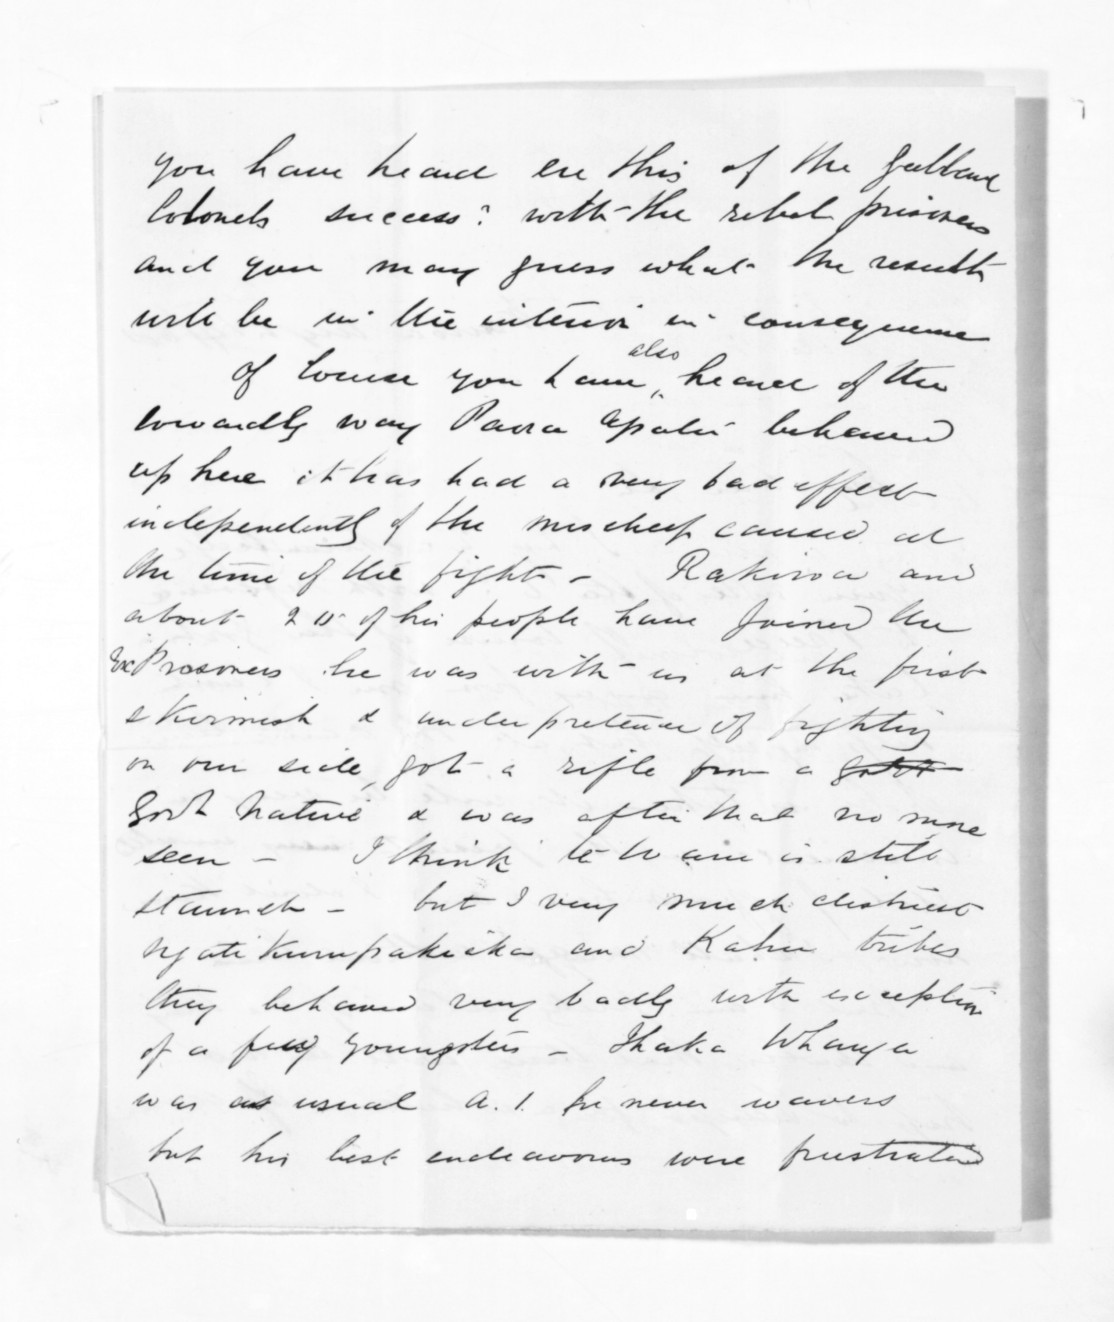 you have heard ere this of the gallant
Colonels success? with the rebel prisoners
and you may guess what the result
will be in the interior in consequence
Of Course you have also heard of the
cowardly way Paora Apatu behaved
up here it has had a very bad effect
independently of the mischief caused at
the time of the fight - Rakiroa and
about 20 of his people have Joined the
Ex Prisoners he was with us at the first
skirmish & under pretence of fighting
on our side, got a rifle from a
Govt Native & was after that no more
seen - I think te Waru is still
staunch - but I very much distrust
Ngatikurupakiaka and Kahu tribes
they behaved very badly with exception
of a few youngsters - Ihaka Whanga
was as usual A.1. he never wavers
but his best endeavours were frustrated